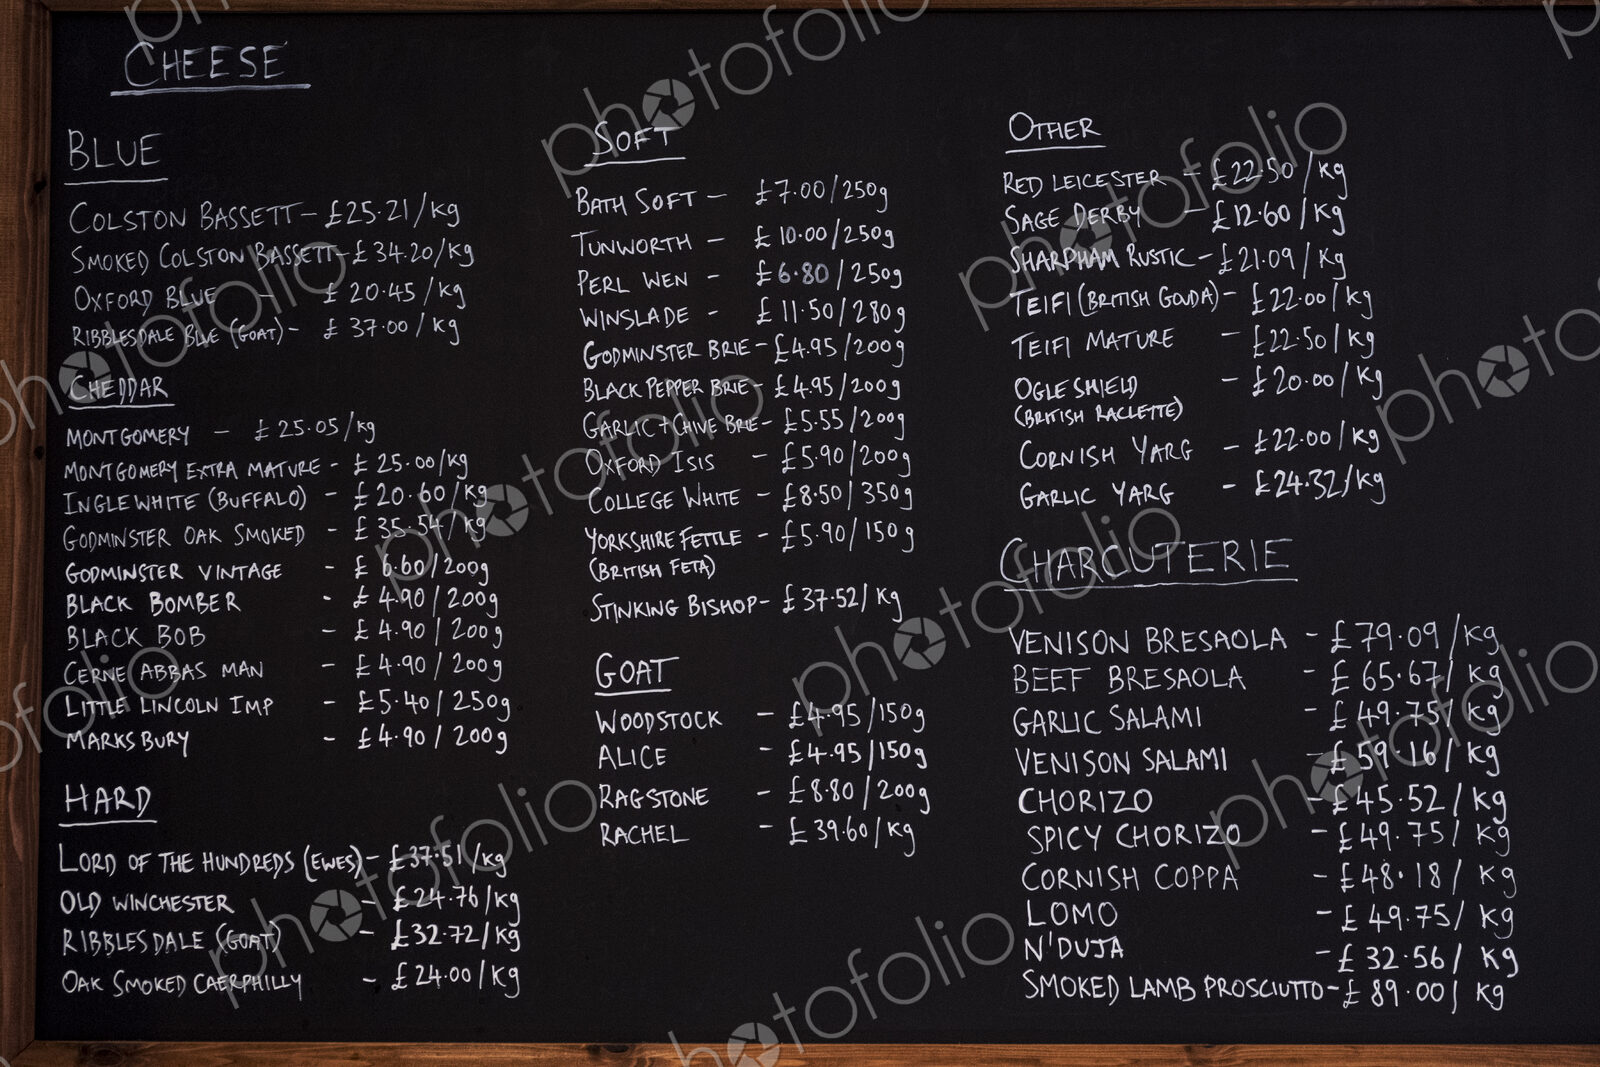 CHEESE
BLUE
COLSTON BASSETT - £25.21/kg
SMOKED COLSTON BASSETT - £34.20/kg
OXFORD BLUE - £20.45/kg
RIBBLESDALE BLUE (GOAT) - £37.00/kg
CHEDDAR
MONTGOMERY - £25.05/kg
MONTGOMERY EXTRA MATURE - £25.00/kg
INGLEWHITE (BUFFALO) - £20.60/kg
GODMINSTER OAK SMOKED - £35.54/kg
GODMINSTER VINTAGE - £6.60/200g
BLACK BOMBER - £4.90/200g
BLACK BOB - £4.90/200g
CERNE ABBAS MAN - £4.90/200g
LITTLE LINCOLN IMP - £5.40/250g
MARKSBURY - £4.90/200g
HARD
LORD OF THE HUNDREDS (EWES) - £37.51/kg
OLD WINCHESTER - £24.76/kg
RIBBLESDALE (GOAT) - £32.72/kg
OAK SMOKED CAERPHILLY - £24.00/kg
SOFT
BATH SOFT - £7.00/250g
TUNWORTH - £10.00/250g
PERL WEN - £6.80/250g
WINSLADE - £11.50/280g
GODMINSTER BRIE - £4.95/200g
BLACK PEPPER BRIE - £4.95/200g
GARLIC + CHIVE BRIE - £5.55/200g
OXFORD ISIS - £5.90/200g
COLLEGE WHITE - £8.50/350g
YORKSHIRE FETTLE - £5.90/150g
(BRITISH FETA)
STINKING BISHOP - £37.52/kg
GOAT
WOODSTOCK - £4.95/150g
ALICE - £4.95/150g
RAGSTONE - £8.80/200g
RACHEL - £39.60/kg
OTHER
RED LEICESTER - £22.50/kg
SAGE DERBY - £12.60/kg
SHARPHAM RUSTIC - £21.09/kg
TEIFI (BRITISH GOUDA) - £22.00/kg
TEIFI MATURE - £22.50/kg
OGLESHIELD - £20.00/kg
(BRITISH RACLETTE)
CORNISH YARG - £22.00/kg
GARLIC YARG - £24.32/kg
CHARCUTERIE
VENISON BRESAOLA - £79.09/kg
BEEF BRESAOLA - £65.67/kg
GARLIC SALAMI - £49.75/kg
VENISON SALAMI - £59.16/kg
CHORIZO - £45.52/kg
SPICY CHORIZO - £49.75/kg
CORNISH COPPA - £48.18/kg
LOMO - £49.75/kg
N'DUJA - £32.56/kg
SMOKED LAMB PROSCIUTTO - £89.00/kg
photofolio
photofolio
photofolio
photofolio
photofolio
photofolio
photofolio
photofolio